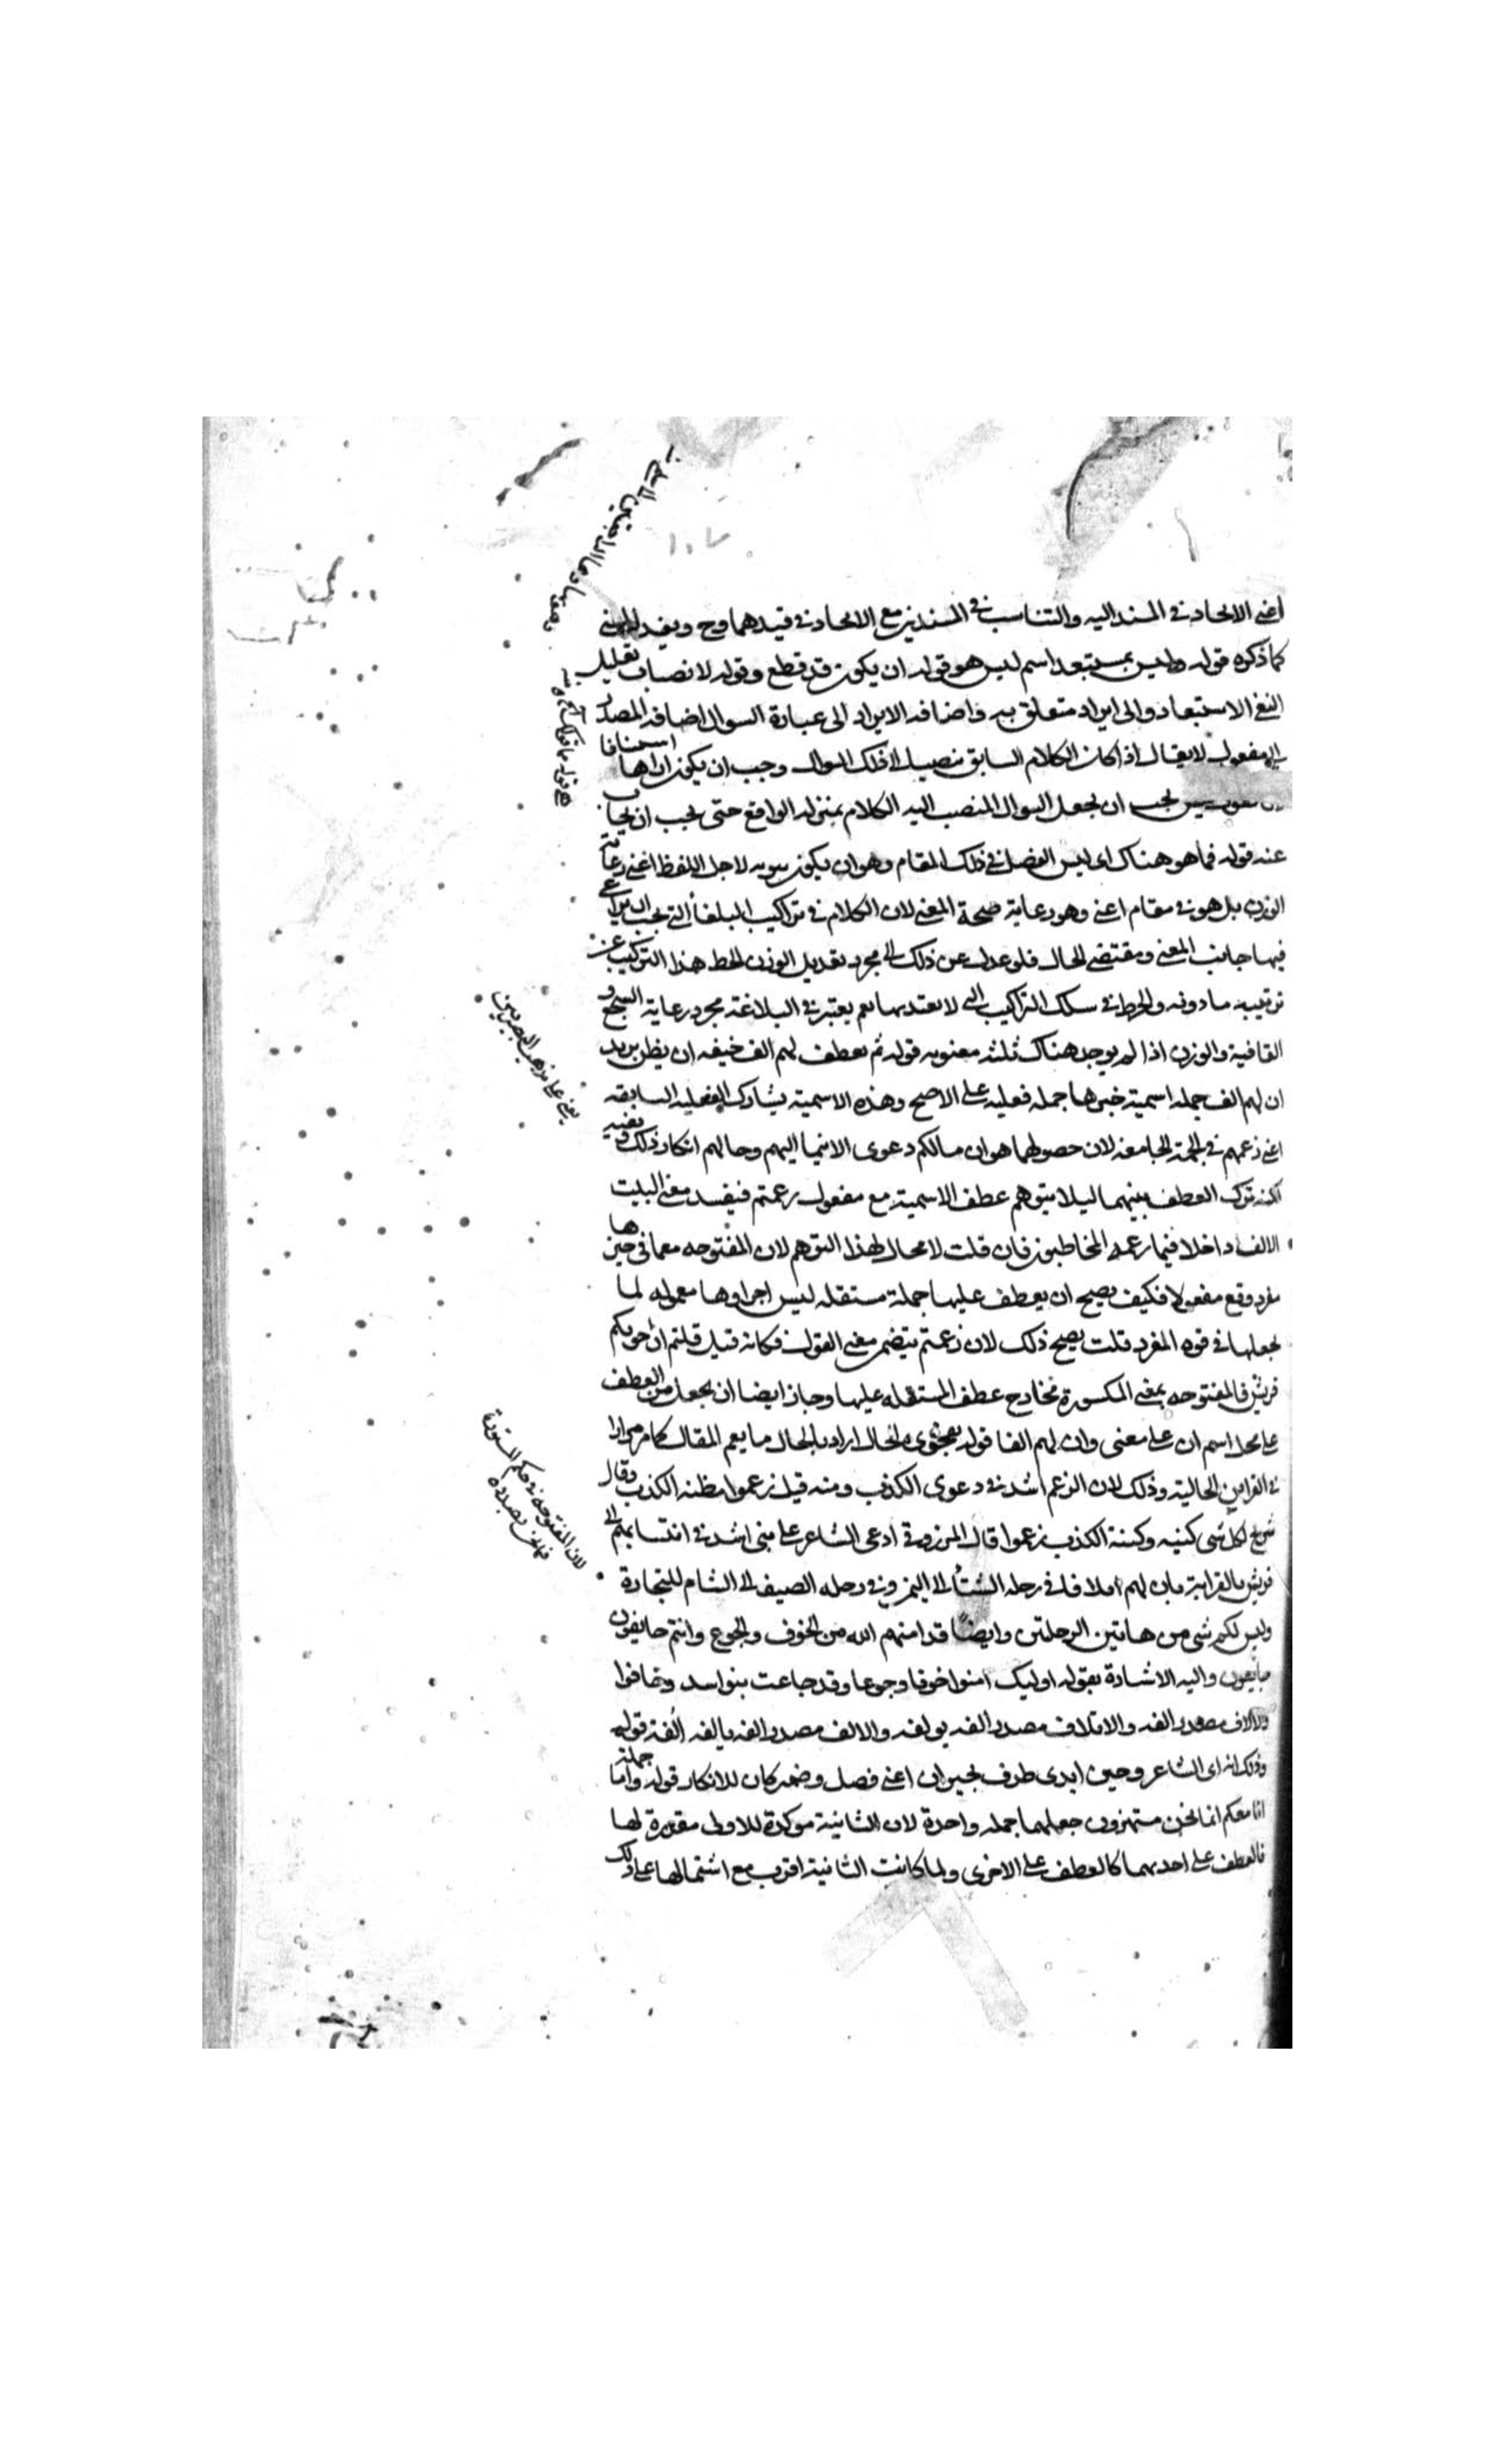 اعنى الاتحاد فى المسند اليه والتناسب فى المسندين مع الاتحاد فى قيدهما وح ويفيد
كما ذكره قوله وليس بمستبعد اسم ليس هو قوله ان يكون قد قطع وقوله لانصباب تعليل
النفى الاستبعاد والى ايراد متعلق به واضافه الايراد الى عبارة السوال اضافه المصدر
الى مفعوله لا يقال اذا كان الكلام السابق ينصب الى ذلك السوال وجب ان يكون استينافا
يجب ان يجعل السوال المنصب اليه الكلام بمنزله الواقع حتى يجب ان يجاب
عنه قوله فما هو هناك اى ليس الفصل فى ذلك المقام وهو ان يكون لاجل اللفظ اعنى رعاية
الوزن بل هو فى مقام اعنى وهو رعاية صحة المعنى لان الكلام فى تراكيب البلغا التى يجب ان يراعى
فيها جانب المعنى ومقتضى الحال فلو عدل عن ذلك الى مجرد تعديل الوزن لانحط هذا التركيب عن
ترتيبه مادونه وانخرط فى سلك التراكيب التى لا يعتد بها نعم يعتبر فى البلاغة مجرد رعاية السجع و
القافية والوزن اذا لم يوجد هناك معنويه قوله ثم يعطف لهم الف خيفه ان يظن يريد
ان لهم الف جمله اسمية خبرها جمله فعليه على الاصح وهذه الاسمية يشارك الفعليه السابقه
اعنى زعمهم فى الجهة الجامعه لان حصولهما هو ان مالكم دعوى الانتما اليهم وحالهم انكار ذلك ونفيه
لكنه ترك العطف بينهما ليلا يتوهم عطف الاسمية مع مفعول زعمتم فيفسد معنى البيت
الالف داخلا فيما زعمه المخاطبون فان قلت لا مجال لهذا التوهم لان المفتوحه مع ما فى حيزها
مفرد وقع مفعولا فكيف يصح ان يعطف عليها جملة مستقله ليس اجزاوها معموله لما
يجعلها فى قوه المفرد قلت يصح ذلك لان زعمتم يتضمن معنى القول فكانه قيل قلتم ان اخوتكم
قريش فالمفتوحه بمعنى المكسورة فجاز ح عطف المستقله عليها وجاز ايضا ان يجعل من العطف
على محل اسم ان على معنى وان لهم الفا قوله بفحوى الحال اراد بالحال ما يعم المقال كما مر مرارا
فى القراين الحالية وذلك لان الزعم اشد فى دعوى الكذب ومنه قيل زعموا مظنه الكذب وقال
شريح لكل شى كنيه وكنية الكذب زعموا قال المرزوقى ادعى الشاعر على مبنى اشد فى انتسابهم الى
قريش بالقرابة بان لهم املافا فى رحله الشتاء الى اليمن وفى رحله الصيف الى الشام للتجارة
وليس لكم شى من هاتين الرحلتين وايضا قد امنهم الله من الخوف والجوع وانتم خايفون
جايعون واليه الاشارة بقوله اوليك امنوا خوفا وجوعا وقد جاعت بنو اسد وخافوا
والالاف مصدر الفه والايلاف مصدر الفه يولفه والالف مصدر الفه يالفه الفة قوله
وذلك انه اى الشاعر وحين ابدى ظرف لخبر ان اعنى فصل وضمير كان للانكار قوله واما جملة
انا معكم انما نحن مستهزون جعلهما جمله واحدة لان الثانية موكدة للاولى مقررة لها
فالعطف على احديهما كالعطف على الاخرى ولما كانت الثانية اقرب مع اشتمالها على ذلك
يعنى على مذهب البصريين
لان المفتوحه فى حكم المكسورة